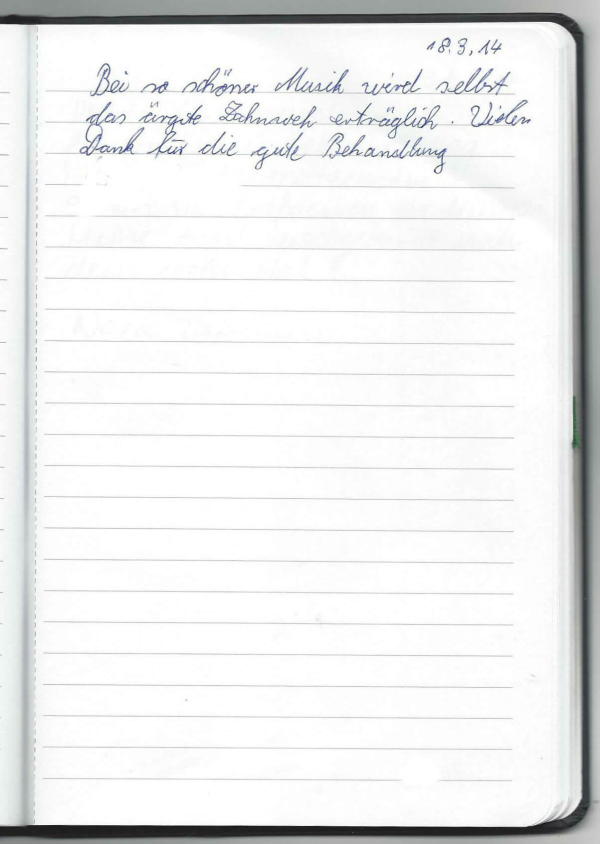 18.3.14
Bei so schöner Musik wird selbst
das ärgste Zahnweh erträglich. Vielen
Dank für die gute Behandlung